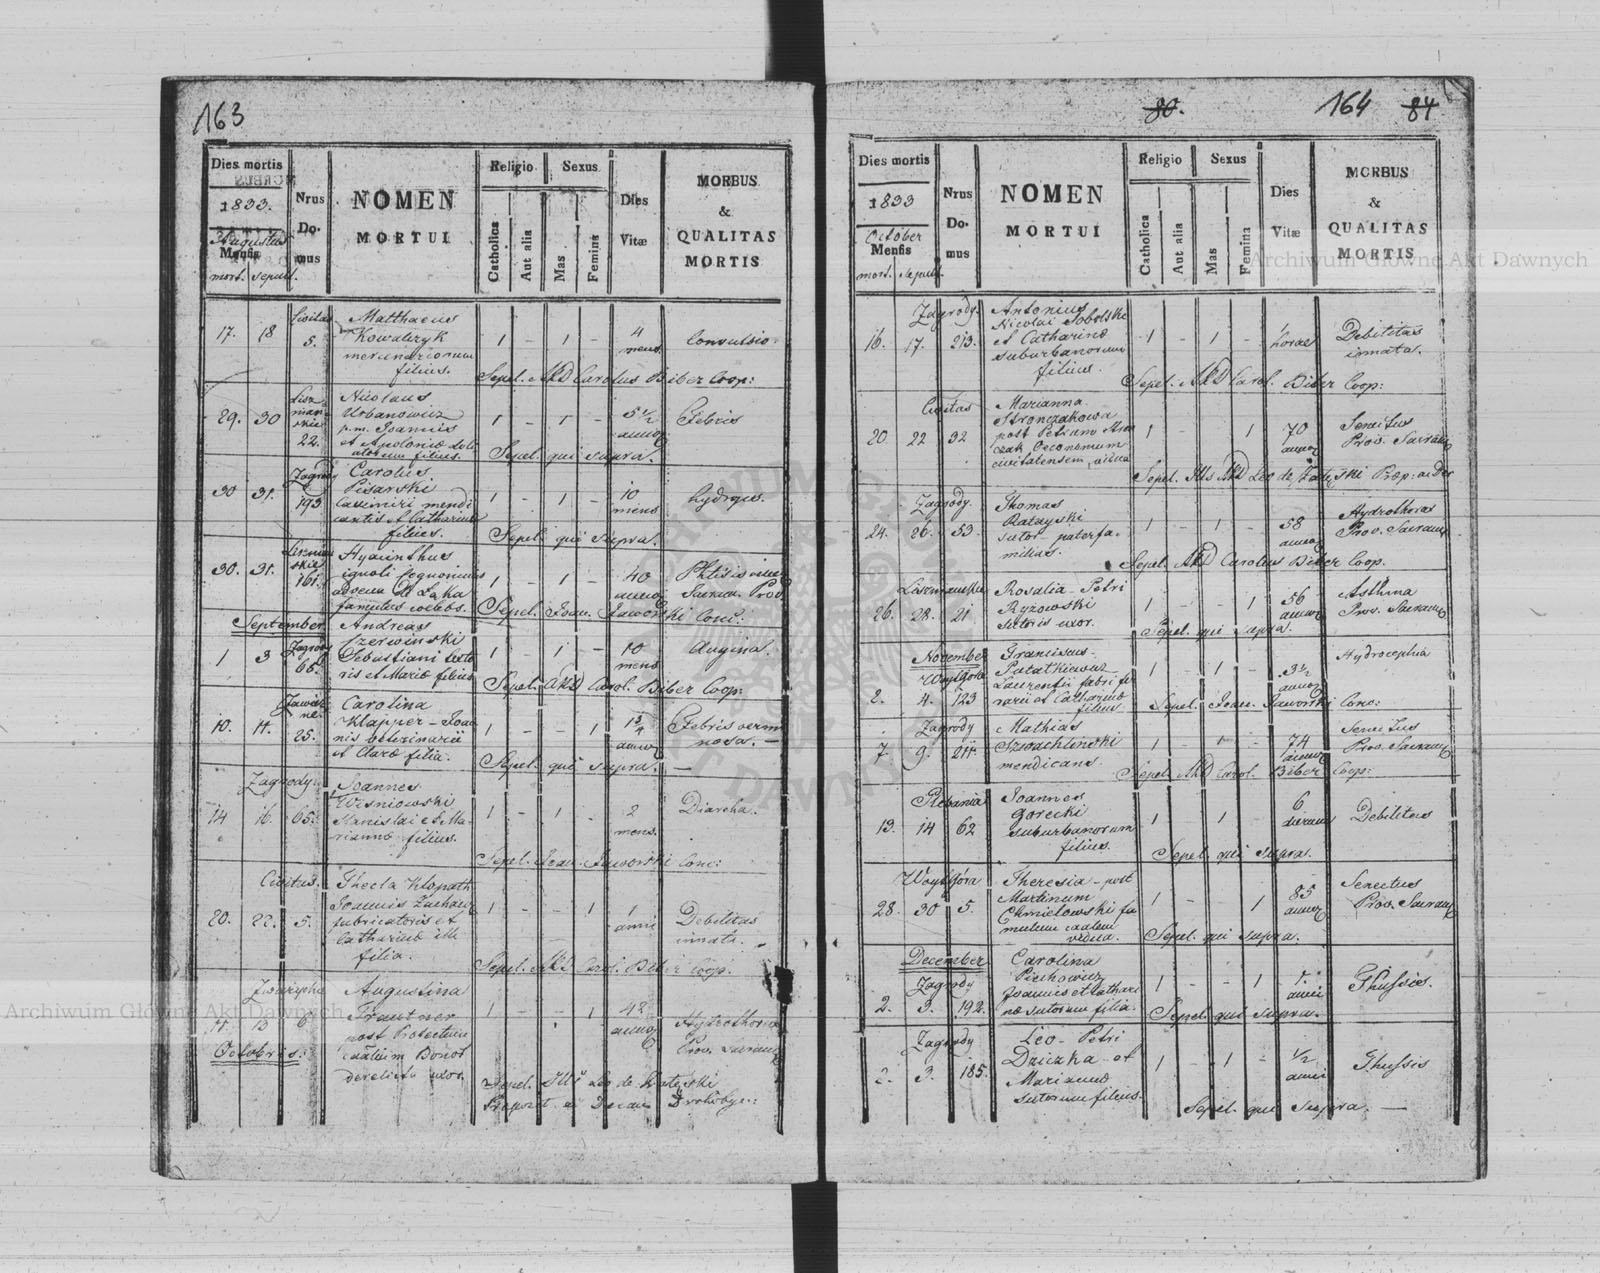 163
Dies mortis
1833.
Augustus
Mensis
mort. sepult.
Nrus
Do-
mus
NOMEN
MORTUI
Religio
Catholica
Aut alia
Sexus
Mas
Femina
Dies
Vitæ
MORBUS
&
QUALITAS
MORTIS
Civitas
17. 18 5.
Matthaeus
Kowalczyk
mercenariorum
filius.
1 - 1 - 4
mens.
Convulsio.
Sepel. ARD Carolus Biber Coop:
29. 30 22.
Nicolaus
Urbanowicz
p.m. Joannis
et Apoloniæ
filius.
1 - 1 - 5 ½
annor
Febris
Sepel. qui supra.
Zagrody
30 31. 193
Carolus
Pisarski
Casimiri mendi
cantis et Catharinæ
filius.
1 - 1 - 10
mens
hydrops.
Sepel. qui supra.
30. 31. 161.
Hyacinthus
ignoti cognominis
famulus coelebs.
1 - 1 - 40
annor
Phtisis
Sacram. Prov
Sepel. Joan. Jaworski Conc:
September
Zagrody
1 3 66.
Andreas
Czerwinski
Sebastiani texto
ris et Mariæ filius
1 - 1 - 10
mens
Angina.
Sepel. ARD Carol. Biber Coop:
10. 11. 25.
Carolina
Klapper - Joan
nis veterinarii
et Claræ filia.
1 - - 1 1¾
annor
Febris vermi
nosa. -
Sepel. qui supra. -
Zagrody.
14 16. 65.
Joannes
Wisniowski
Stanislai et Ma-
riannæ filius.
1 - 1 - 2
mens.
Diarrha.
Sepel. Joan. Jaworski Conc:
Civitas.
20. 22. 5.
Thecla Klopath
Joannis
fabricatoris et
Catharinæ
filia.
1 - - 1 1
anni
Debilitas
innata.
Sepel. ARD Carol. Biber Coop.
11 13 6
Octobris:
Augustina
Trautner
post
derelicta uxor.
1 - - 1 42
annor
Hydrothorax
Prov. Sacram
Sepel. Leo de
Præposit. Drohobyc.:
80.
164
84
Dies mortis
1833
October
Mensis
mort. sepult.
Nrus
Do-
mus
NOMEN
MORTUI
Religio
Catholica
Aut alia
Sexus
Mas
Femina
Dies
Vitæ
MORBUS
&
QUALITAS
MORTIS
Zagrody.
16. 17. 213.
Antonius
Nicolai Sobolski
et Catharinæ
suburbanorum
filius.
1 - 1 -
horae
Debilitas
innata.
Sepel. ARD Carol. Biber Coop:
Civitas
20. 22 32
Marianna
Stronczakowa
post Petrum
Oeconomum
civitatensem, vidua
1 - - 1 70
annor
Senectus
Prov. Sacram
Sepel. Ills ARD Leo de
Zagrody.
24. 26. 53.
Thomas
Ratayski
sutor paterfa-
milias.
1 - 1 - 58
annor
Hydrothorax
Prov. Sacram
Sepel. ARD Carolus Biber Coop.
26. 28. 21
Rosalia - Petri
Ryzowski
sutoris uxor.
1 - - 1 56
annor
Asthma
Prov. Sacram
Sepel. qui supra.
November
2. 4. 123
Franciscus
Patatkiewicz
Laurentii fabri fe
rarii et Catharinæ
filius
1 - 1 - 3½
annor
Hydrocephia
Sepel. Joan. Jaworski Conc:
Zagrody
7. 9. 211.
Mathias
Szwachlinski
mendicans.
1 - 1 - 74
annor
Senectus
Prov. Sacram
Sepel. ARD Carol. Biber Coop:
Plebania
13. 14 62
Joannes
Gorecki
suburbanorum
filius.
1 1 6
dierum
Debilitas
Sepel. qui supra.
28. 30 5.
Theresia - post
Martinum
Chmielowski fa
mulum
vidua.
1 - 1 85
annor
Senectus
Prov. Sacram
Sepel. qui supra.
December
Zagrody
2. 3. 192.
Carolina
Piechowicz
Joannis et Cathari
næ sutorum filia.
1 - - 1 1.
anni
Thussis.
Sepel. qui supra.
Zagrody
2. 3. 185.
Leo - Petri
Dziczka - et
Mariannæ
sutorum filius.
1 - 1 - ½
anni
Thussis
Sepel. qui supra. -
Archiwum Główne Akt Dawnych
Archiwum Główne Akt Dawnych